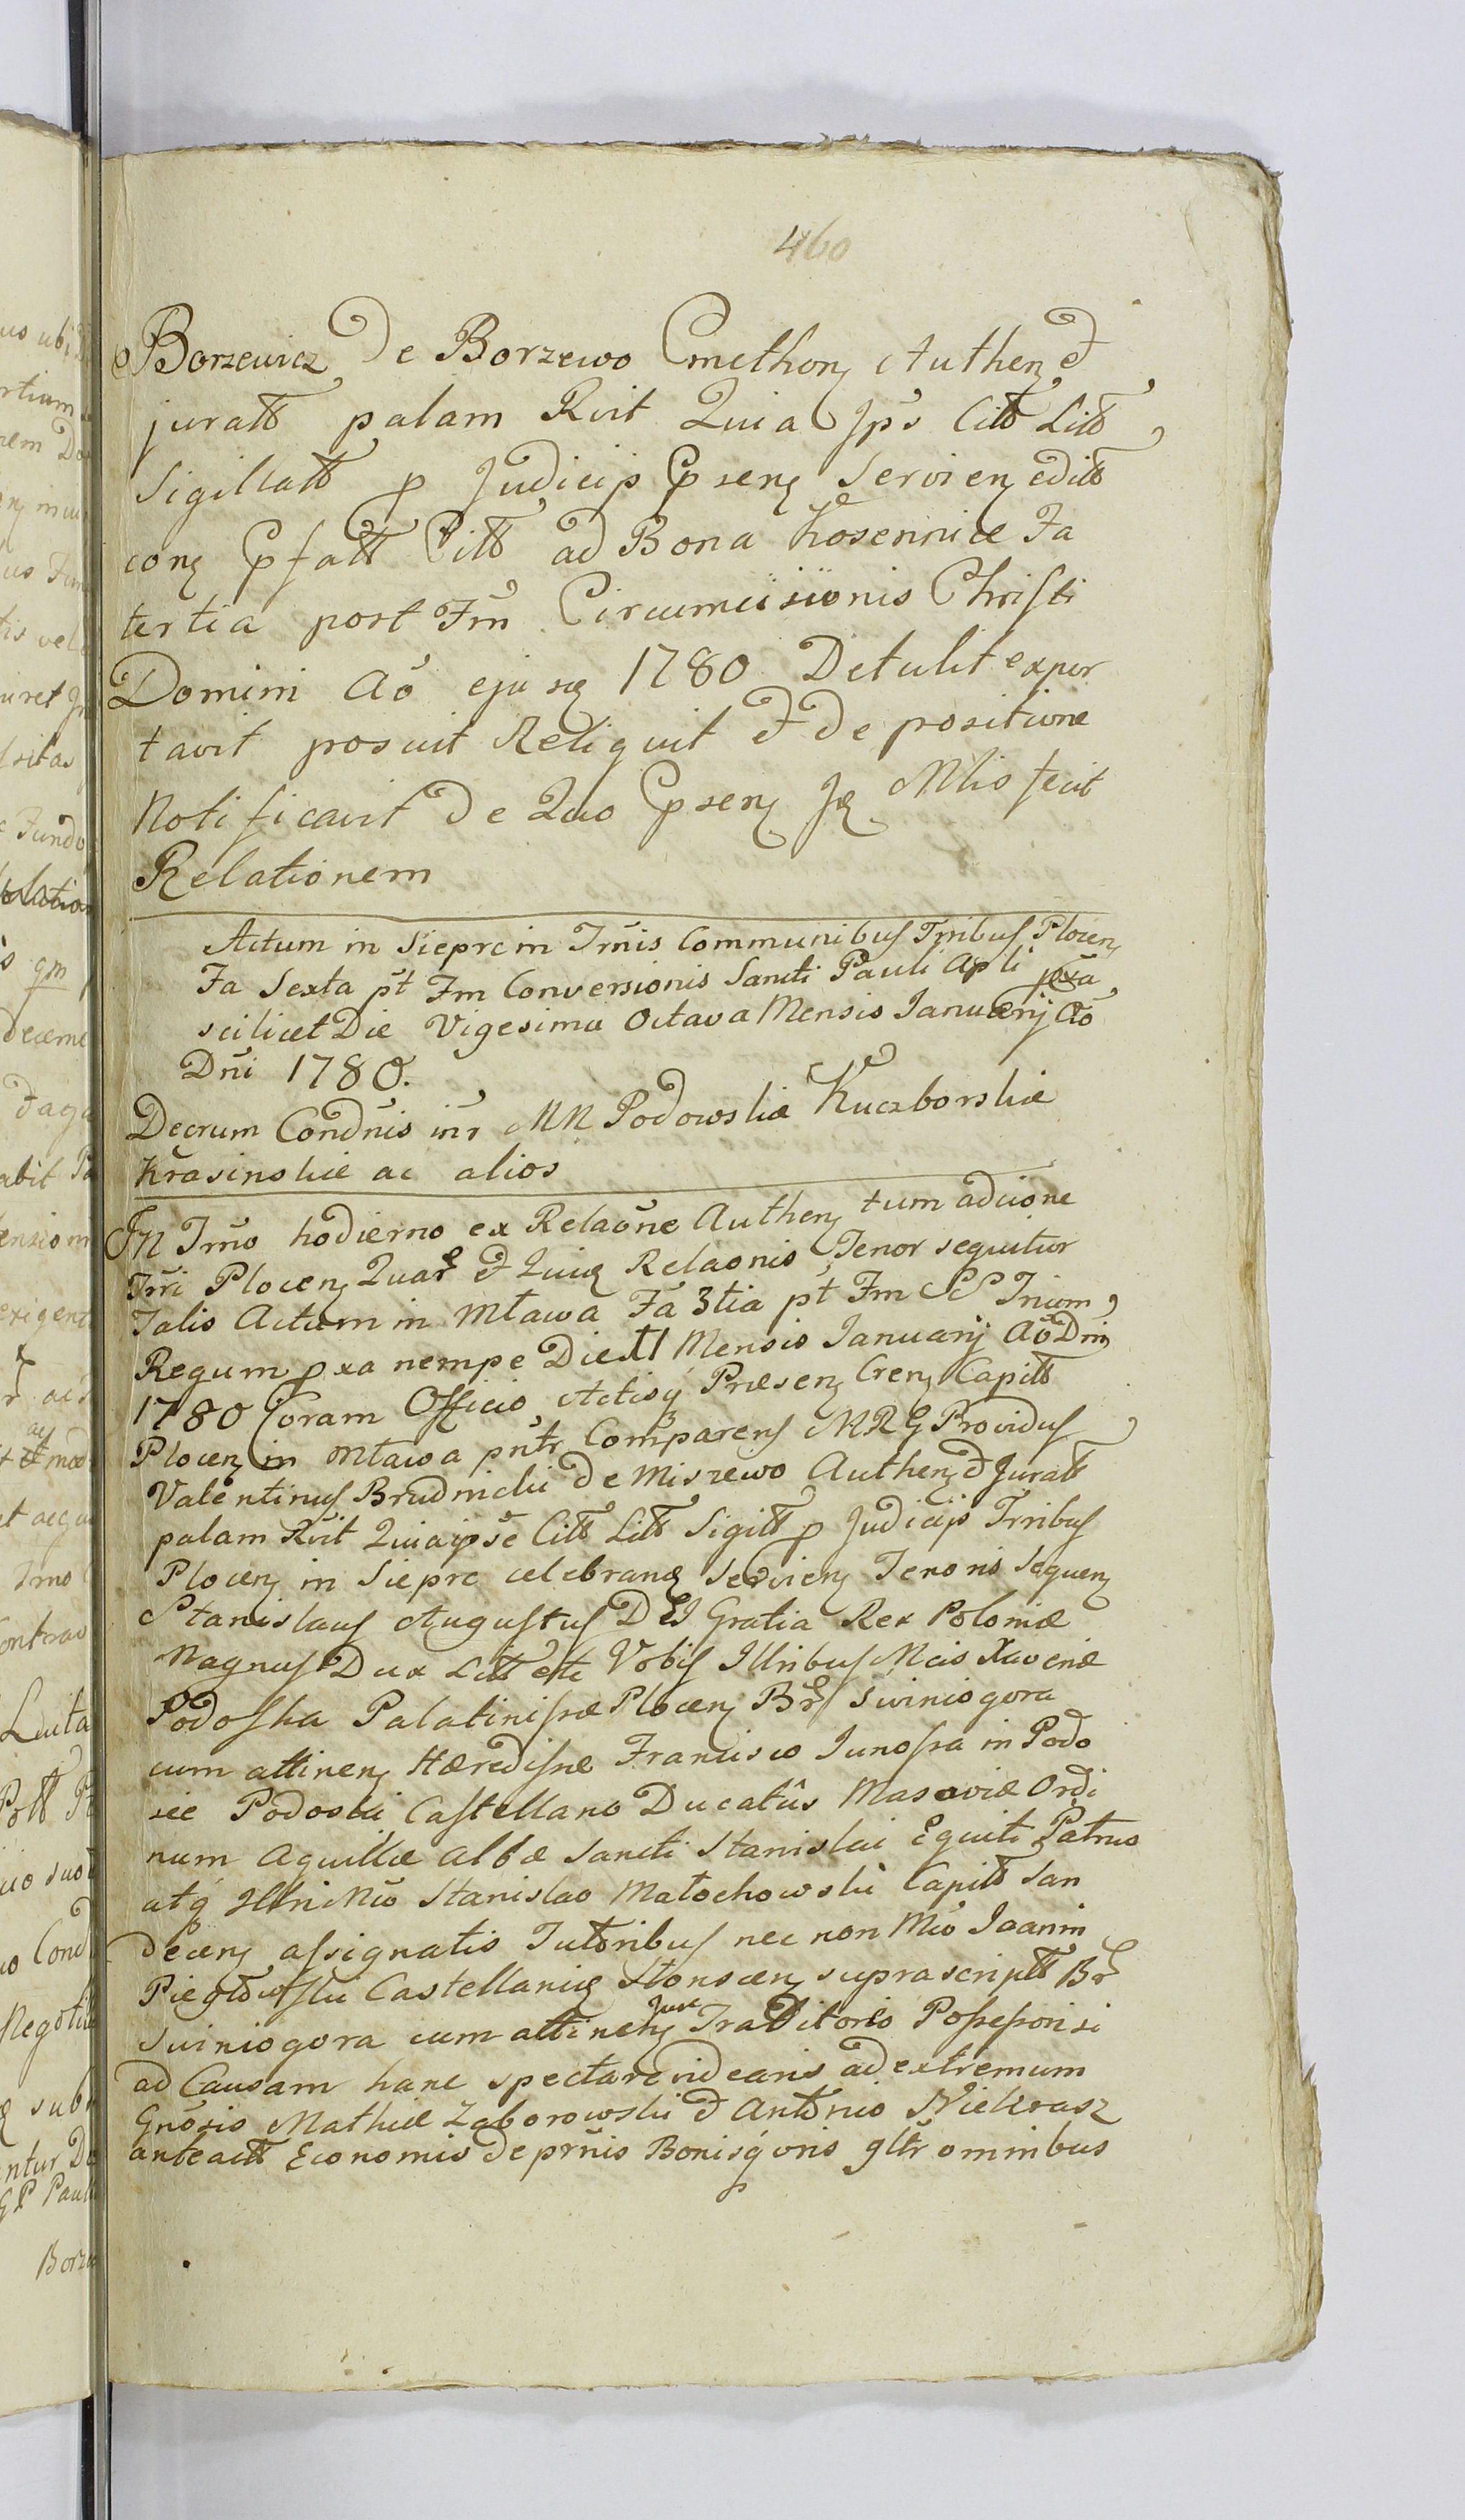 460
Borzewicz de Borzewo Cmethon Authen &
juratt palam Rvit Quia Jps Citt Litt
Sigillatt p Judicijs Psen Servien editt
con Pfatt Citt ad Bona Kosennice Fa
tertia post Fm Circumcisionis Christi
Domini Ao ejusq 1780 Detulit expor
tavit posuit Reliquit & de positione
Notificavit De Quo Psen Mlis fecit
Relationem
Actum in Sieprc in Trnis Communibus Trribus Plocen
Fa Sexta pt Fm Conversionis Sancti Pauli Apli pxa
scilicet Die Vigesima Octava Mensis Januarij Ao
Dni 1780.
Decrum Condnis inr MM Podowskie Kuczborskie
Krasinskie ac alios
In Trno hodierno ex Relaone Authen tum adcione
Trri Plocen Quar & Quiq Relaonis Tenor sequitur
Talis Actum in Mława Fa 3tia pt Fm SS Trium
Regum pxa nempe Die 11 Mensis Januarij Ao Dni
1780 Coram Officio Actisq Præsen Cren Capitt
Plocen in Mława pntr Comparens MRG Providus
Valentinus Brudnicki de Miszewo Authen & Juratt
palam Rvit Quia ipse Citt Litt Sigitt p Judicijs Trribus
Plocen in Sieprc celebran Servien Tenoris Sequen
Stanislaus Augustus DEI Gratia Rex Poloniæ
Magnus Dux Litt etc Vobis Illribus Mcis Xaveriæ
Podoska Palatinissæ Plocen Br Swiniogora
cum attinen Hæredissæ Francisco Junossa in Podo
sie Podoski Castellano Ducatûs Masoviæ Ordi
num Aquillæ Albæ Sancti Stanislai Equiti Patruo
atq Illri Mco Stanislao Małochowski Capitt San
decen assignatis Tutoribus nec non Mco Joanni
Piegłowski Castellaniq Słonscen suprascriptt Br
Swiniogora cum attinen Jure Traditorio Possessori si
ad Causam hanc spectare videaris ad extremum
Gnosis Mathiæ Zaborowski & Antonio Niekrasz
anteactt Economis de prnis Bonisq vris gltr omnibus